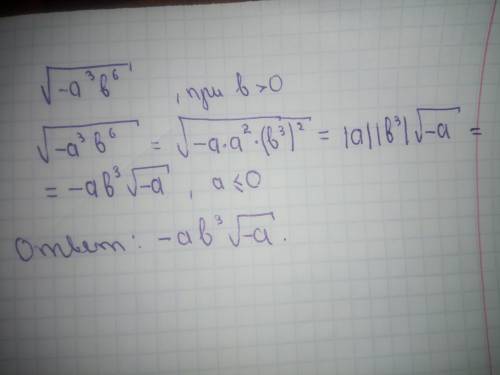 √(-a³b⁶) , при b > 0
√(-a³b⁶) = √(-a·a²·(b³)²) = |a||b³|√(-a) =
= -ab³√(-a) , a ⩽ 0
Ответ: -ab³√(-a).